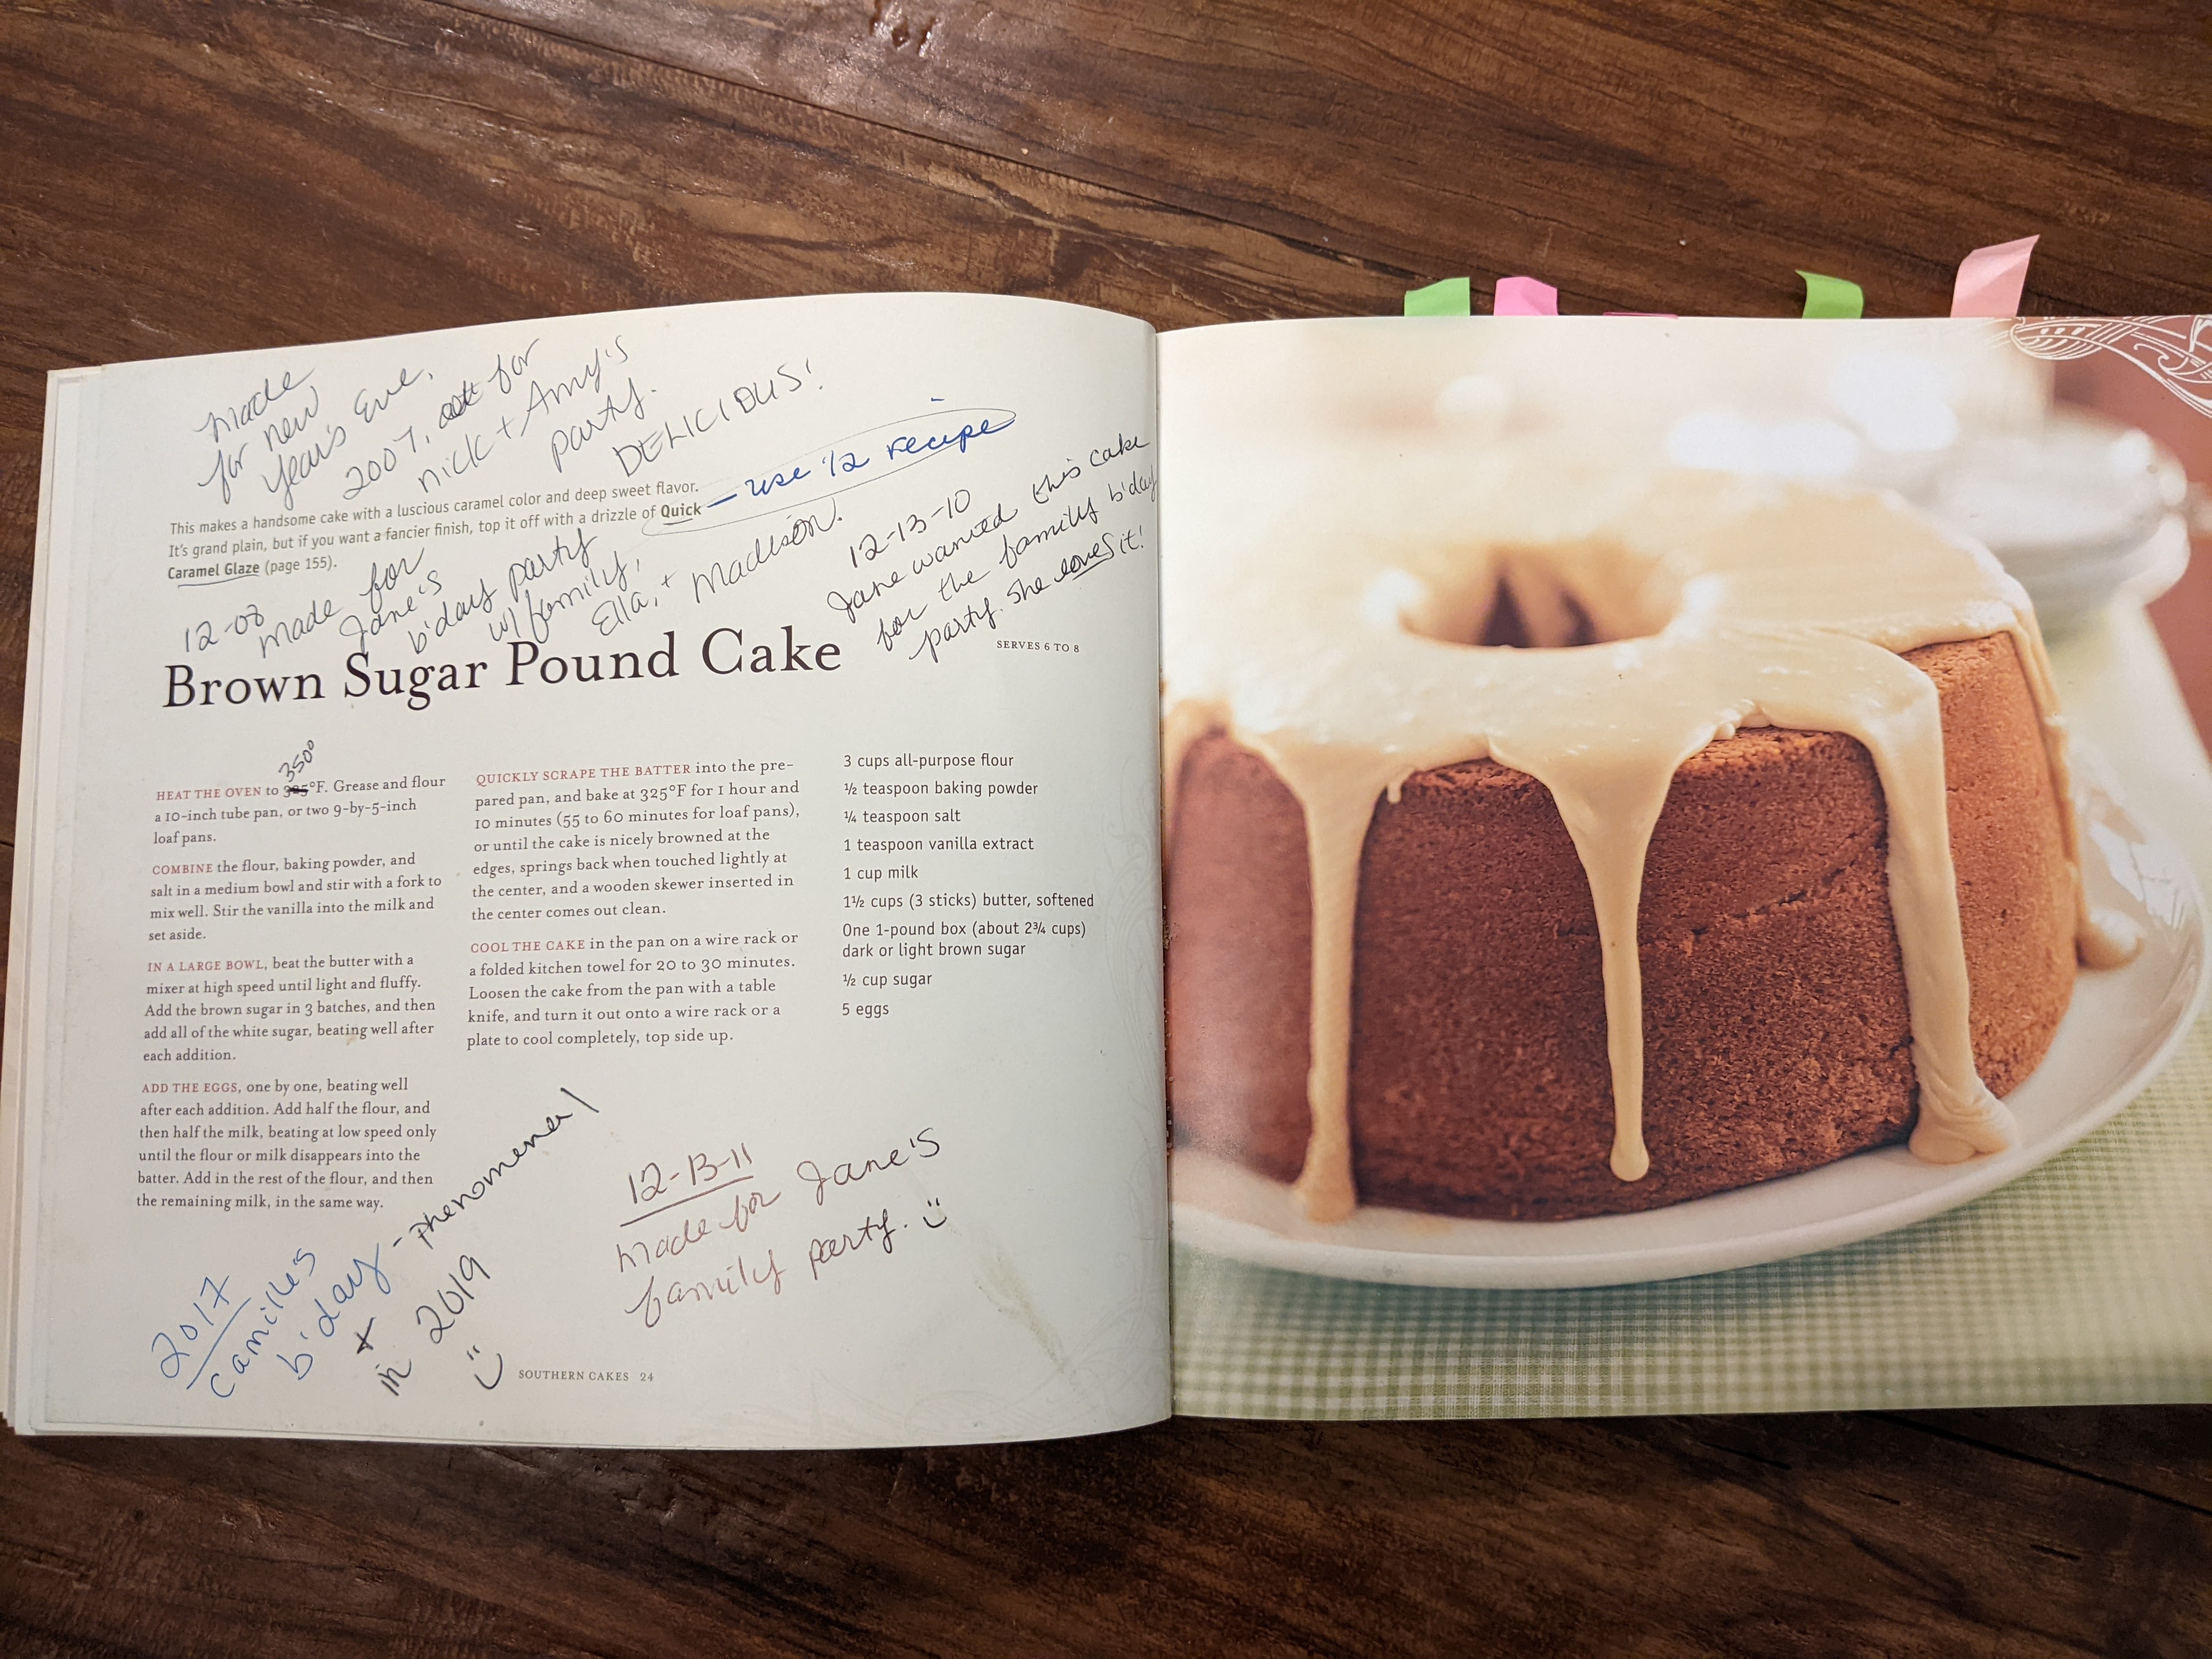 made
for new
year's Eve,
2007, for
nick + Amy's
party.
DELICIOUS!
This makes a handsome cake with a luscious caramel color and deep sweet flavor.
It's grand plain, but if you want a fancier finish, top it off with a drizzle of Quick
Caramel Glaze (page 155).
— use 1/2 recipe
12-08
made for
Jane's
b'day party
w/ family,
Ella, + Madison.
12-13-10
Jane wanted this cake
for the family b'day
party. She loves it!
Brown Sugar Pound Cake
SERVES 6 TO 8
350°
HEAT THE OVEN to 325°F. Grease and flour
a 10-inch tube pan, or two 9-by-5-inch
loaf pans.
COMBINE the flour, baking powder, and
salt in a medium bowl and stir with a fork to
mix well. Stir the vanilla into the milk and
set aside.
IN A LARGE BOWL, beat the butter with a
mixer at high speed until light and fluffy.
Add the brown sugar in 3 batches, and then
add all of the white sugar, beating well after
each addition.
ADD THE EGGS, one by one, beating well
after each addition. Add half the flour, and
then half the milk, beating at low speed only
until the flour or milk disappears into the
batter. Add in the rest of the flour, and then
the remaining milk, in the same way.
QUICKLY SCRAPE THE BATTER into the pre-
pared pan, and bake at 325°F for 1 hour and
10 minutes (55 to 60 minutes for loaf pans),
or until the cake is nicely browned at the
edges, springs back when touched lightly at
the center, and a wooden skewer inserted in
the center comes out clean.
COOL THE CAKE in the pan on a wire rack or
a folded kitchen towel for 20 to 30 minutes.
Loosen the cake from the pan with a table
knife, and turn it out onto a wire rack or a
plate to cool completely, top side up.
3 cups all-purpose flour
½ teaspoon baking powder
¼ teaspoon salt
1 teaspoon vanilla extract
1 cup milk
1½ cups (3 sticks) butter, softened
One 1-pound box (about 2¾ cups)
dark or light brown sugar
½ cup sugar
5 eggs
2017
camilles
b'day - phenomenal
+
in 2019
12-13-11
made for Jane's
family party.
SOUTHERN CAKES 24